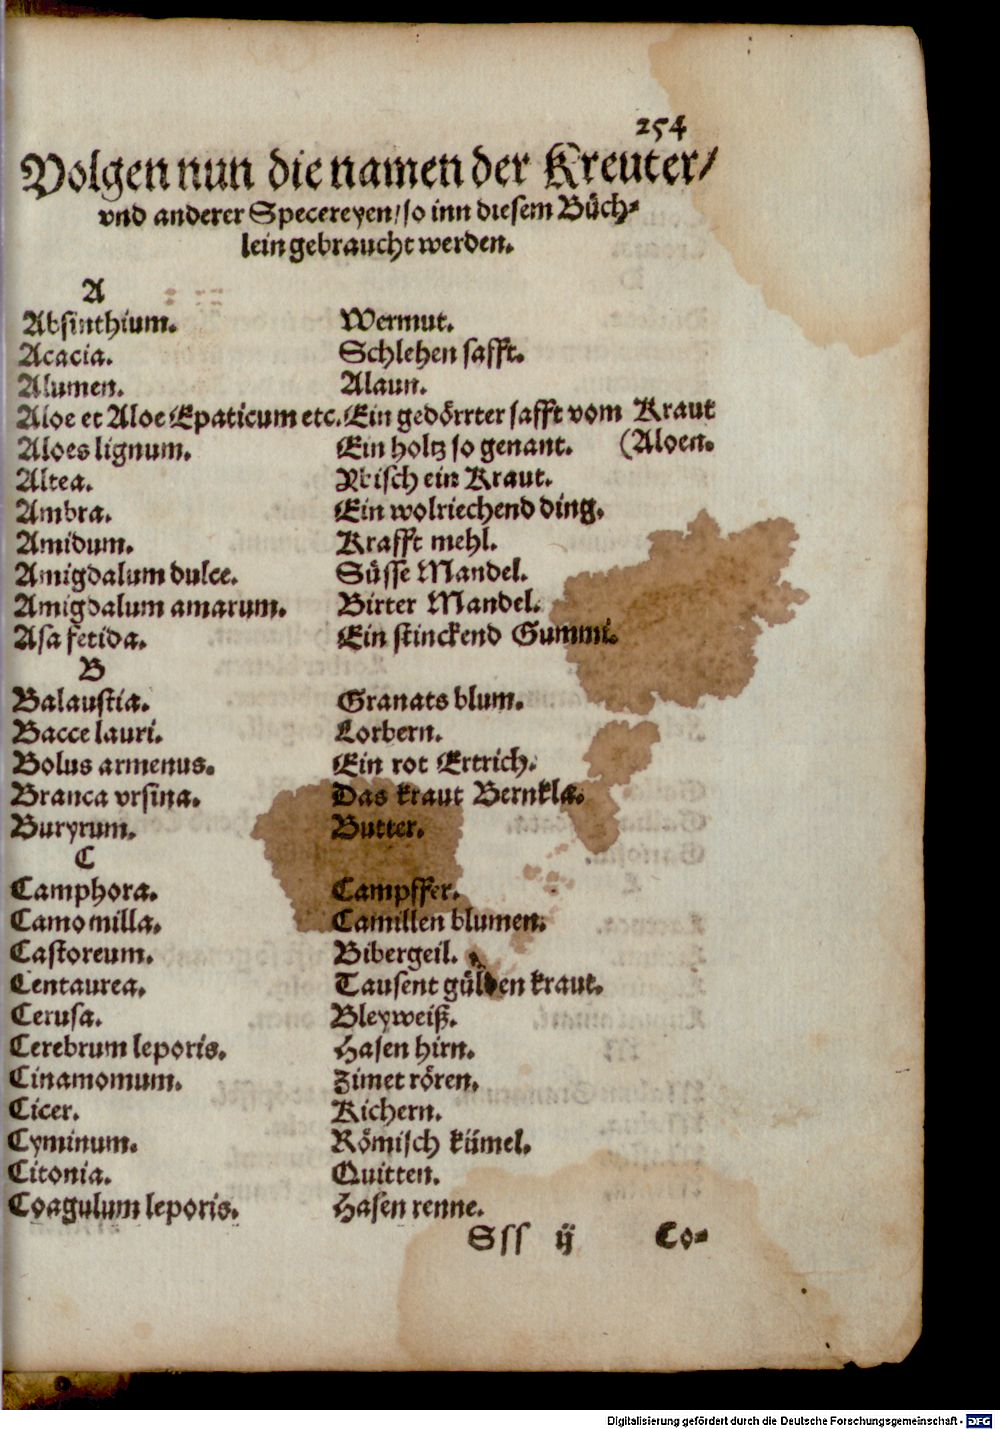 254
Volgen nun die namen der Kreuter/
vnd anderer Specereyen/so inn diesem Büch-
lein gebraucht werden.
A
Absinthium. Wermut.
Acacia. Schlehen safft.
Alumen. Alaun.
Aloe et Aloe Epaticum etc. Ein gedörrter safft vom Kraut
Aloes lignum. Ein holtz so genant. (Aloen.
Altea. Ybisch ein Kraut.
Ambra. Ein wolriechend ding.
Amidum. Krafft mehl.
Amigdalum dulce. Süsse Mandel.
Amigdalum amarum. Birter Mandel.
Asa fetida. Ein stinckend Gummi.
B
Balaustia. Granats blum.
Bacce lauri. Lorbern.
Bolus armenus. Ein rot Ertrich.
Branca vrsina. Das kraut Bernkla.
Buryrum. Butter.
C
Camphora. Campffer.
Camomilla. Camillen blumen.
Castoreum. Bibergeil.
Centaurea. Tausent gülden kraut.
Cerusa. Bleyweiß.
Cerebrum leporis. Hasen hirn.
Cinamomum. Zimet rören.
Cicer. Kichern.
Cyminum. Römisch kümel.
Citonia. Quitten.
Coagulum leporis. Hasen renne.
Sss ij Co-
Digitalisierung gefördert durch die Deutsche Forschungsgemeinschaft - DFG